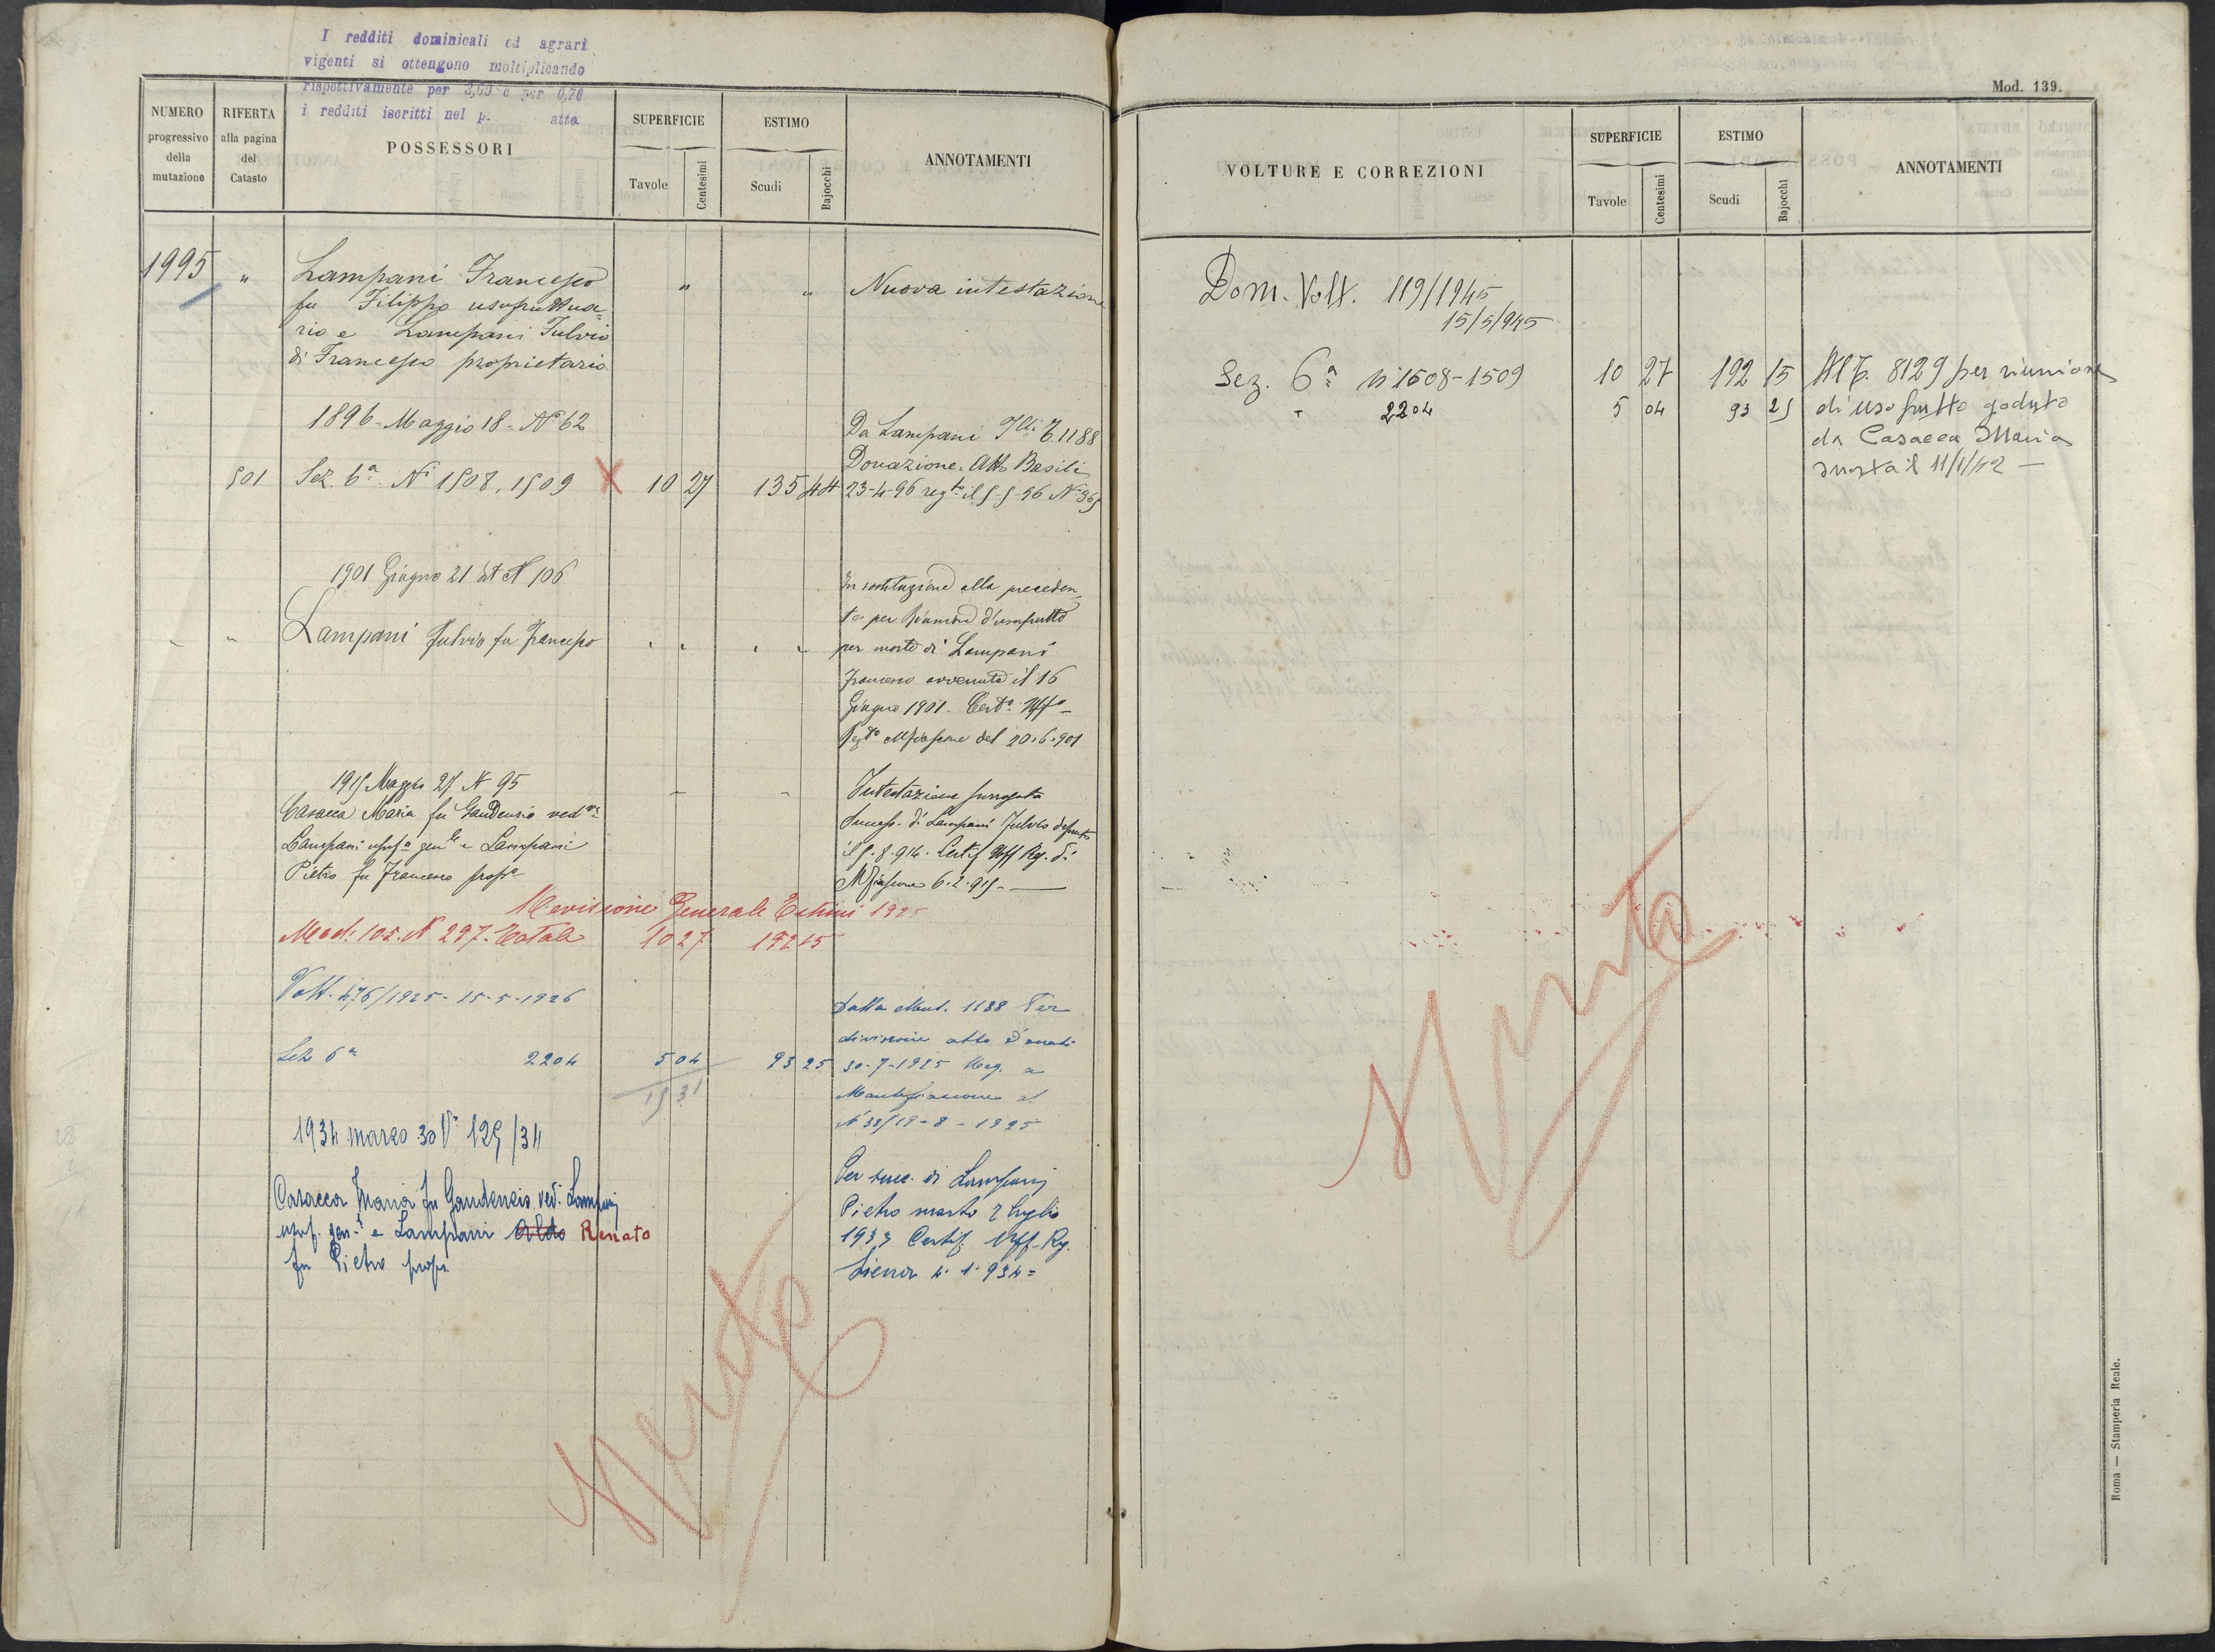 I redditi dominicali ed agrari
vigenti si ottengono moltiplicando
rispettivamente per 3,60 e per 0,70
i redditi iscritti nel p. atto
NUMERO
progressivo
della
mutazione
RIFERTA
alla pagina
del
Catasto
POSSESSORI
SUPERFICIE
Tavole
Centesimi
ESTIMO
Scudi
Bajocchi
ANNOTAMENTI
1995 " Lampani Francesco " " Nuova intestazione
fu Filippo usufruttua=
rio e Lampani Fulvio
di Francesco proprietario
1896 - Maggio 18 - Nº 62
Da Lampani Flli T. 1188
Donazione. Atto Basili
501 Sez. 6ª Ni 1508, 1509 X 10 27 135 44 23-4-96 regto il 5-5-96 Nº 365
1901 Giugno 21 N 106
In sostituzione alla preceden
te per Riunione d'usufrutto
" " Lampani Fulvio fu Francesco " " " " per morte di Lampani
Francesco avvenuta il 16
Giugno 1901 - Certº Uffº
Regº Mfiascone del 20.6.901
1915 Maggio 25 N 95
Casacca Maria fu Gaudenzio vedva
Lampani usufª genle e Lampani
Pietro fu Francesco propº
Intestazione surrogata
Success. di Lampani Fulvio defunto
il 5.8.914. Certif Uff Reg. di
Mfiascone 6.2.915 -
Revisione Generale Estimi 1925
Mod. 105. N 297. Totale 10 27 192 15
Volt. 476/1925 - 15-5-1926
Sez 6ª 2204 5 04 93 25
15 31
Dalla Mut. 1188 Per
divisione atto Donati
30-7-1925 Reg. a
Montefiascone al
N 38/19-8-1925
1934 marzo 30 Vº 129/34
Casacca Maria fu Gaudenzio ved. Lampani
usuf. gen. e Lampani Aldo Renato
fu Pietro propr
Per succ. di Lampani
Pietro morto 2 luglio
1933 Certif. Uff. Rg.
Siena 4.1.934=
Vuota
Mod. 139.
VOLTURE E CORREZIONI
SUPERFICIE
Tavole
Centesimi
ESTIMO
Scudi
Bajocchi
ANNOTAMENTI
Dom. Volt. 119/1945
15/5/945
Sez. 6ª ni 1508-1509 10 27 192 15 Al T. 8129 per riunione
" 2204 5 04 93 25 di usofrutto goduto
da Casacca Maria
morta il 11/1/42 -
Vuota
Roma — Stamperia Reale.